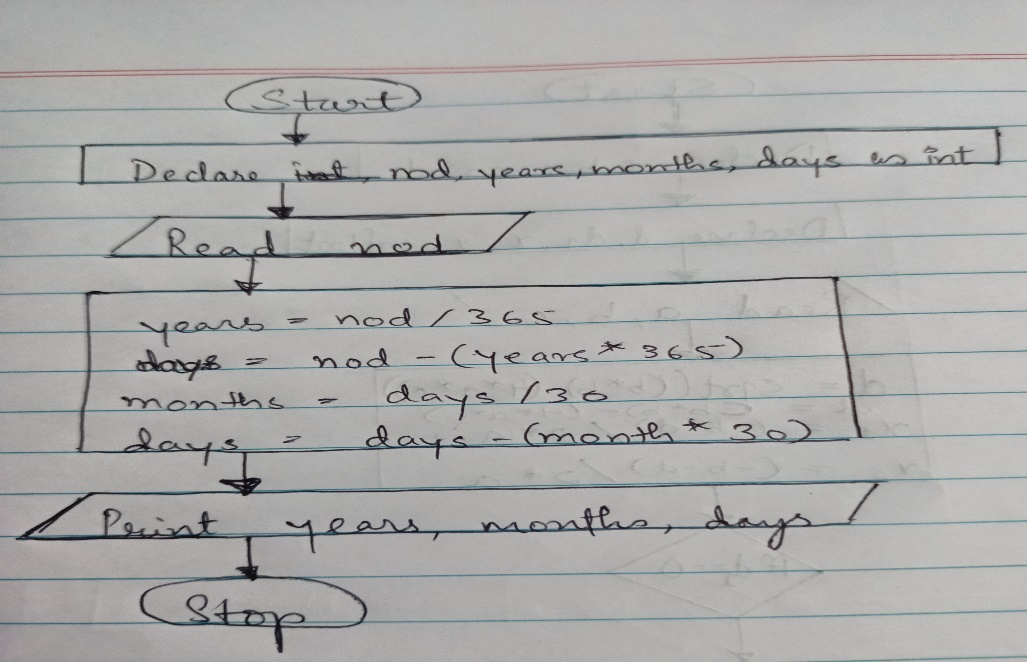 Start
Declare int, nod, years, months, days as int
Read nod
years = nod / 365
days = nod - (years * 365)
months = days / 30
days = days - (month * 30)
Print years, months, days
Stop